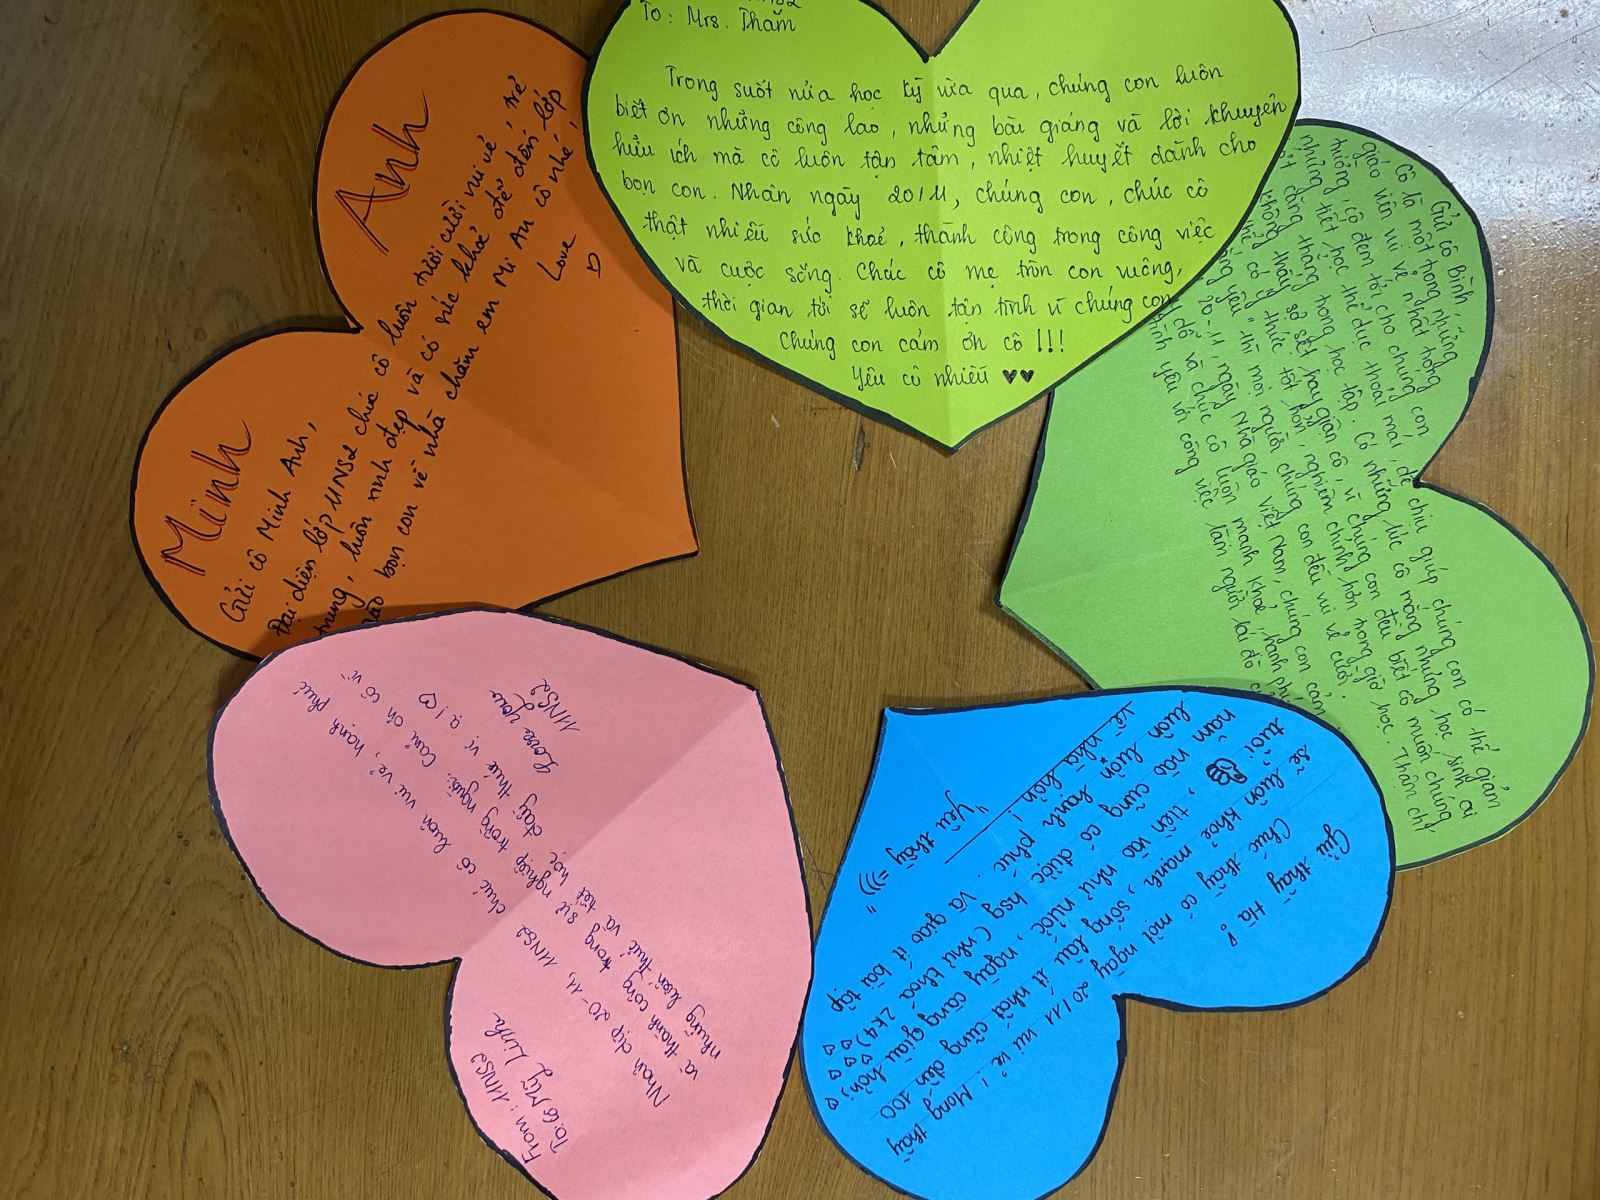 To: Mrs. Thắm
Trong suốt nửa học kỳ vừa qua, chúng con luôn
biết ơn những công lao, những bài giảng và lời khuyên
hữu ích mà cô luôn tận tâm, nhiệt huyết dành cho
bọn con. Nhân ngày 20/11, chúng con, chúc cô
thật nhiều sức khoẻ, thành công trong công việc
và cuộc sống. Chúc cô mẹ tròn con vuông,
thời gian tới sẽ luôn tận tình vì chúng con
Chúng con cảm ơn cô !!!
Yêu cô nhiều ♥♥
Minh Anh
Gửi cô Minh Anh,
Đại diện lớp 11NS2 chúc cô luôn tươi cười vui vẻ, trẻ
trung, luôn xinh đẹp và có sức khoẻ để đến lớp
bọn con về nhà chăm em Mi An cô nhé,
Love
Gửi cô Bình,
Cô là một trong những
giáo viên vui vẻ nhất trong
trường, cô đem tới cho chúng con
những tiết học thể dục thoải mái, dễ chịu giúp chúng con có thể giảm
căng thẳng trong học tập. Có những lúc cô mắng nhưng học sinh ai
thấy sợ sệt hay giận cô, vì chúng con đều biết cô muốn chúng
có ý thức tốt hơn, nghiêm chỉnh hơn trong giờ học. Thậm chí
yêu" thì mọi người chúng con đều vui vẻ cười.
20-11, ngày Nhà giáo Việt Nam, chúng con cảm
đỗ và chúc cô luôn mạnh khoẻ, hạnh phúc
tình yêu với công việc làm người lái đò
Gửi thầy Hà!
Chúc thầy có một ngày 20/11 vui vẻ! Mong thầy
sẽ luôn khoẻ mạnh, sống lâu ít nhất cũng đến 100
tuổi, tiền vào như nước, ngày càng giàu hơn,
năm nào cũng có được hsg (như khoá 2k4)
luôn luôn hạnh phúc và giao ít bài tập
về nhà hơn!
"Yêu thầy =)))"
From: 11NS2
To: Cô Mỹ Linh
Nhân dịp 20-11, 11NS2 chúc cô luôn vui vẻ, hạnh phúc
và thành công trong sự nghiệp trồng người. Cảm ơn cô vì
những kiến thức và tiết học đầy thú vị ạ! ♡
Love you
11NS2